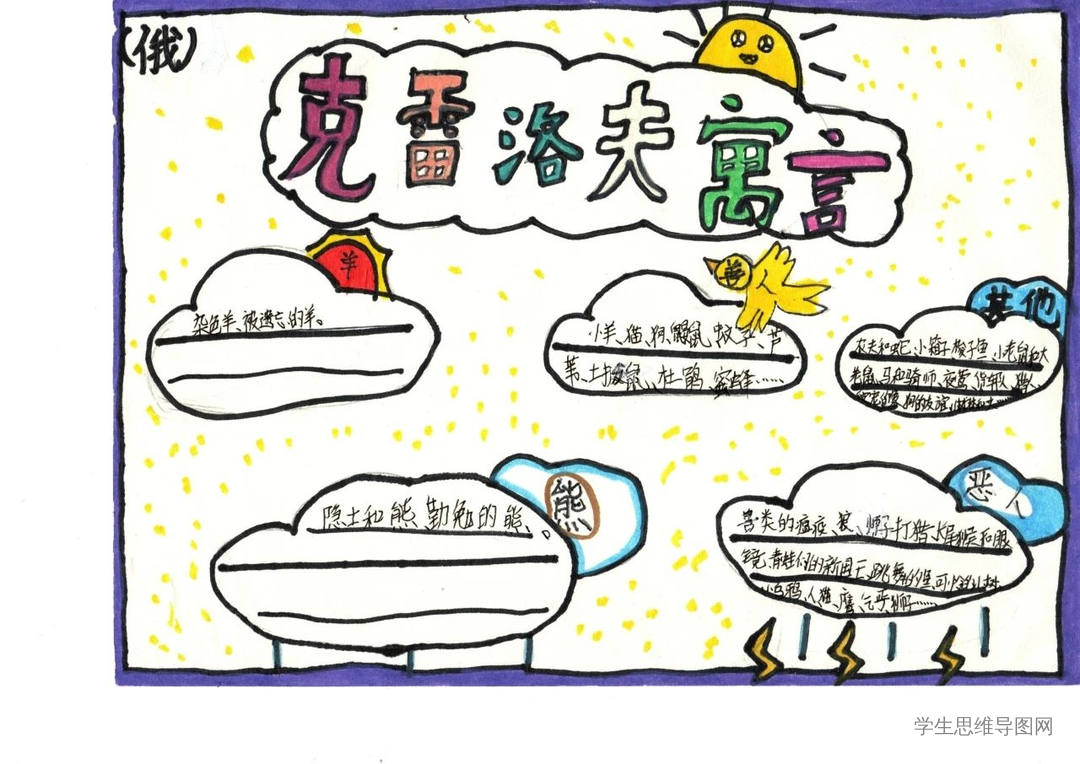 （俄）
克雷洛夫寓言
羊
染色羊、被遗忘的羊。
善
小羊、猫、狗、鼹鼠、蚊子、芦
苇、土拨鼠、杜鹃、蜜蜂……
其他
农夫和蛇、小箱子、梭子鱼、小老鼠和大
老鼠、马和骑师、夜莺、货车队、
狗的友谊、
熊
隐士和熊、勤勉的熊、
恶人
兽类的瘟疫、狼、狮子打猎、长尾猴和眼
镜、青蛙们的新国王、跳舞的鱼、
乌鸦、人、猫、鹰、
学生思维导图网